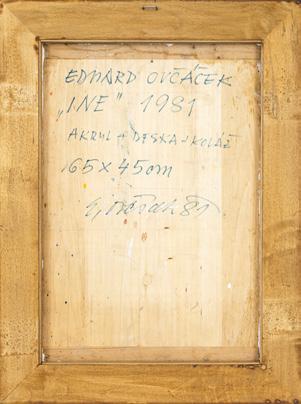 EDUARD OVČÁČEK
„INE" 1981
AKRYL + DESKA + KOLÁŽ
65 x 45 cm
E. Ovčáček 81